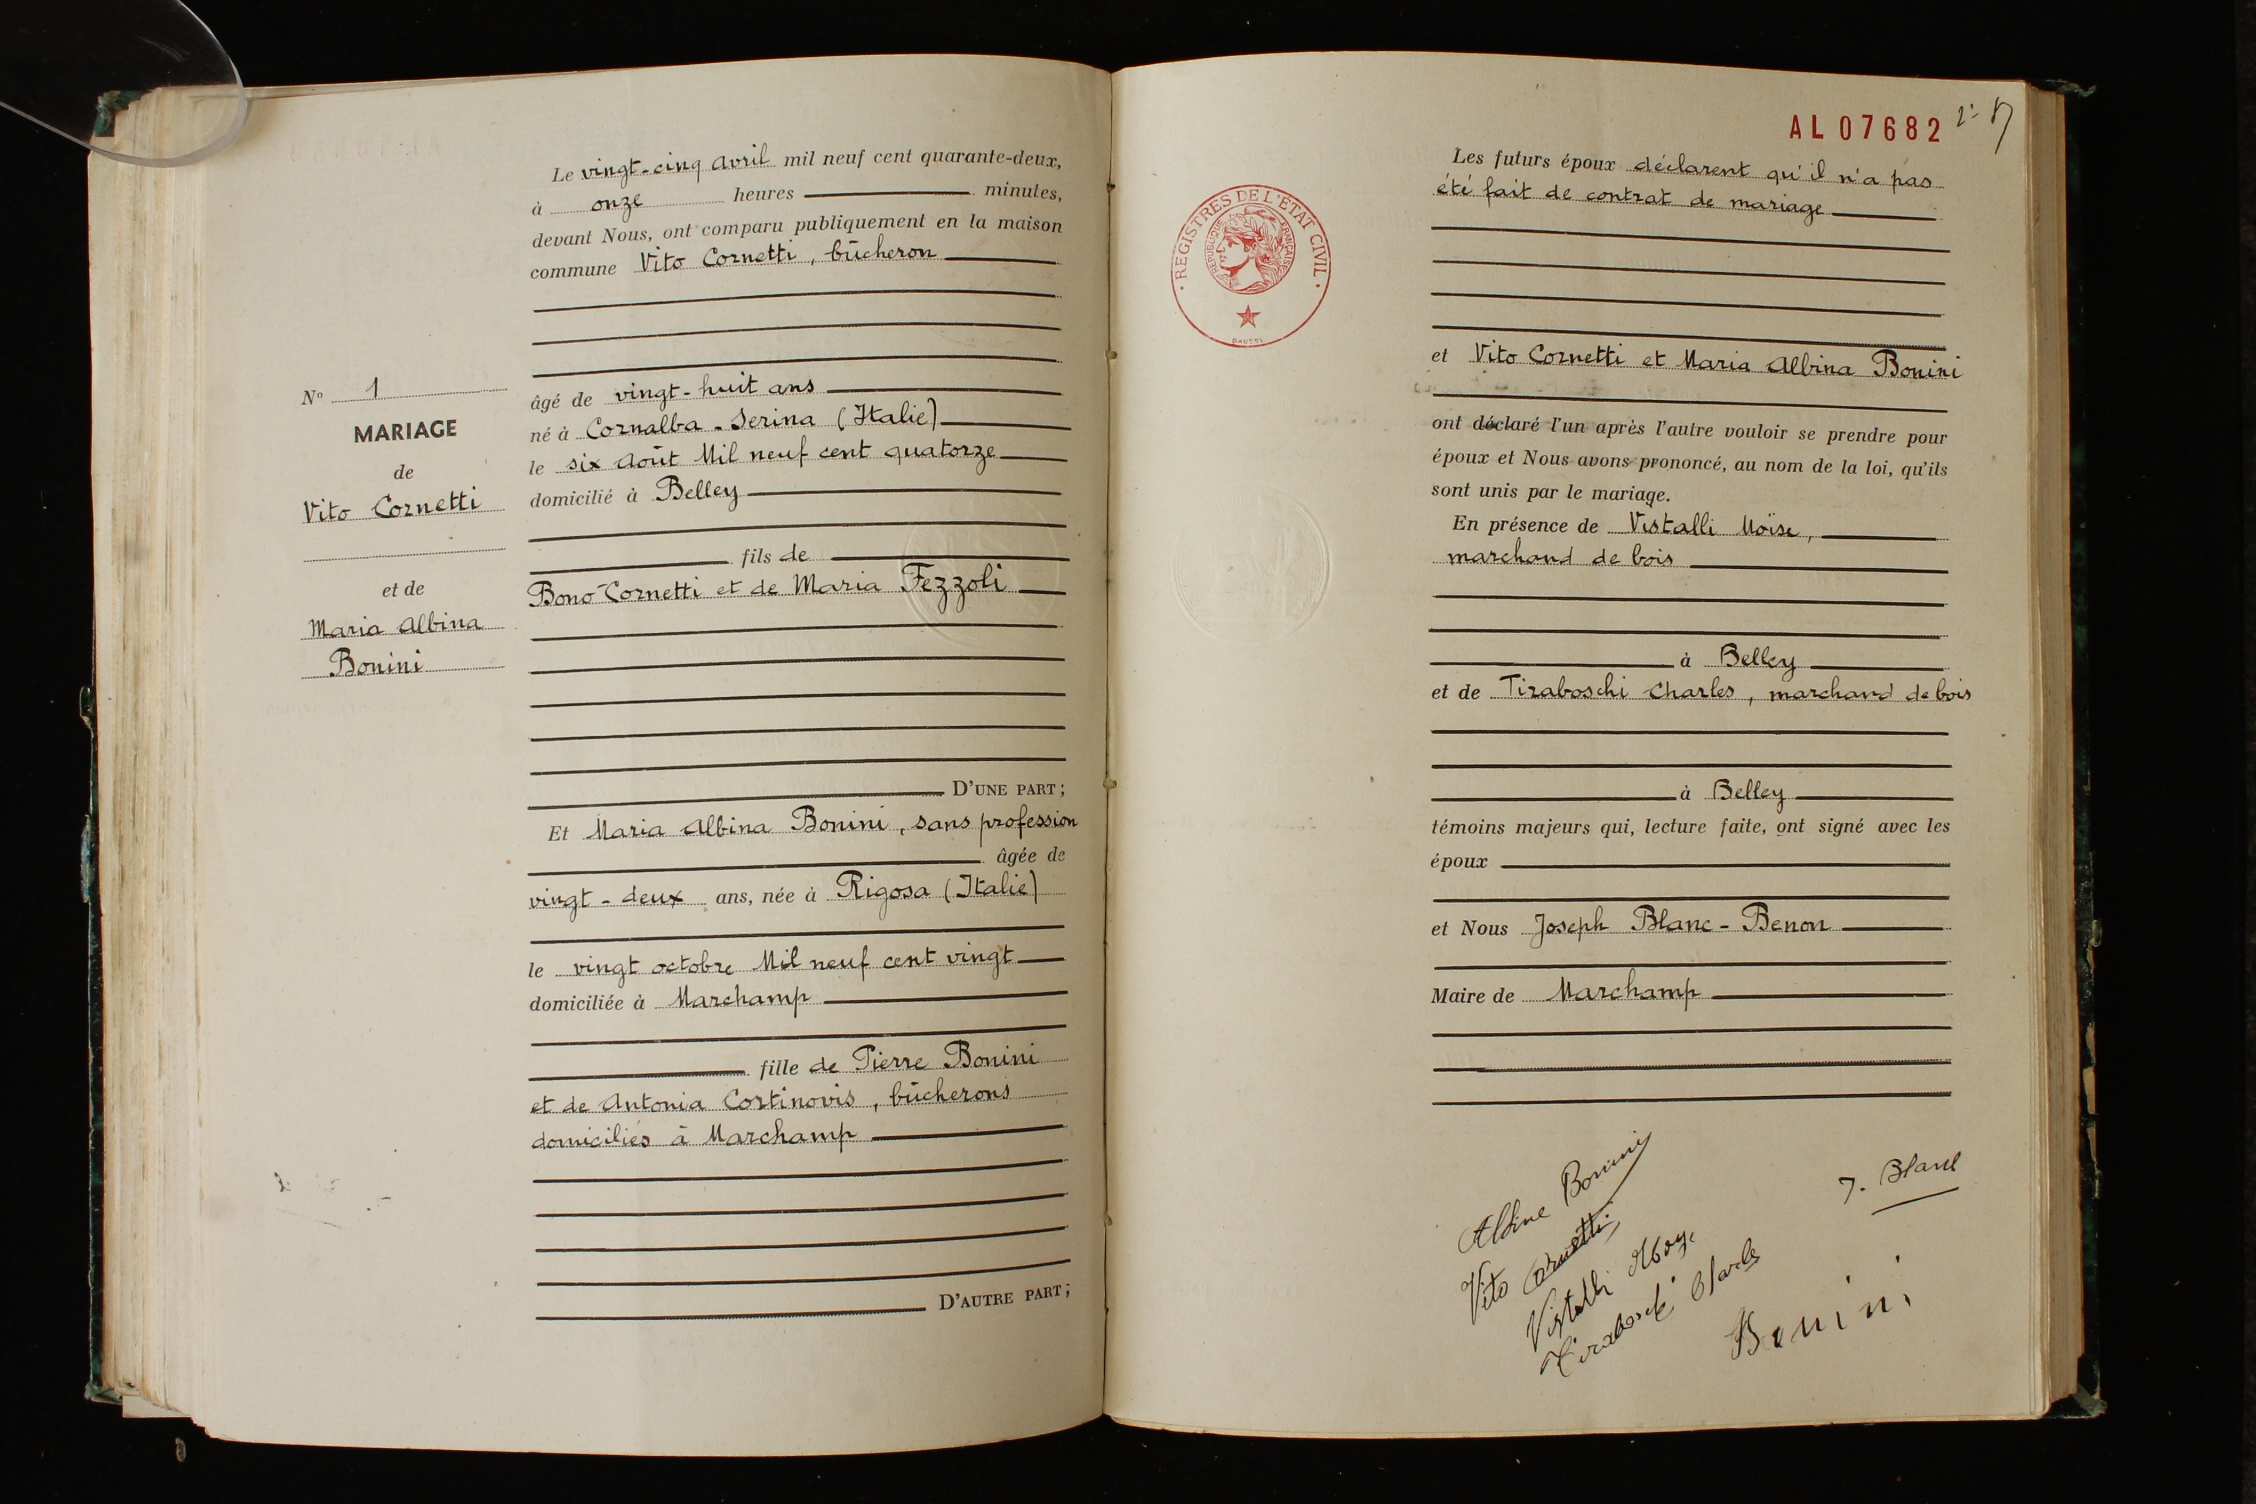 Le vingt-cinq avril mil neuf cent quarante-deux,
à onze heures minutes,
devant Nous, ont comparu publiquement en la maison
commune Vito Cornetti, bûcheron
âgé de vingt-huit ans
né à Cornalba-Serina (Italie)
le six Août Mil neuf cent quatorze
domicilié à Belley
fils de
Bono Cornetti et de Maria Fezzoli
D'UNE PART;
Et Maria Albina Bonini, sans profession
âgée de
vingt-deux ans, née à Rigosa (Italie)
le vingt octobre Mil neuf cent vingt
domiciliée à Marchamp
fille de Pierre Bonini
et de Antonia Cortinovis, bûcherons
domiciliés à Marchamp
D'AUTRE PART;
N° 1
MARIAGE
de
Vito Cornetti
et de
Maria Albina
Bonini
AL 07682
REGISTRES DE L'ÉTAT CIVIL
RÉPUBLIQUE FRANÇAISE
Les futurs époux déclarent qu'il n'a pas
été fait de contrat de mariage
et Vito Cornetti et Maria Albina Bonini
ont déclaré l'un après l'autre vouloir se prendre pour
époux et Nous avons prononcé, au nom de la loi, qu'ils
sont unis par le mariage.
En présence de Vistalli Moïse,
marchand de bois
à Belley
et de Tiraboschi Charles, marchand de bois
à Belley
témoins majeurs qui, lecture faite, ont signé avec les
époux
et Nous Joseph Blanc-Benon
Maire de Marchamp
Albine Bonini
Vito Cornetti
Vistalli Moyse
Tiraboschi Charles
J. Blanc
Bonini